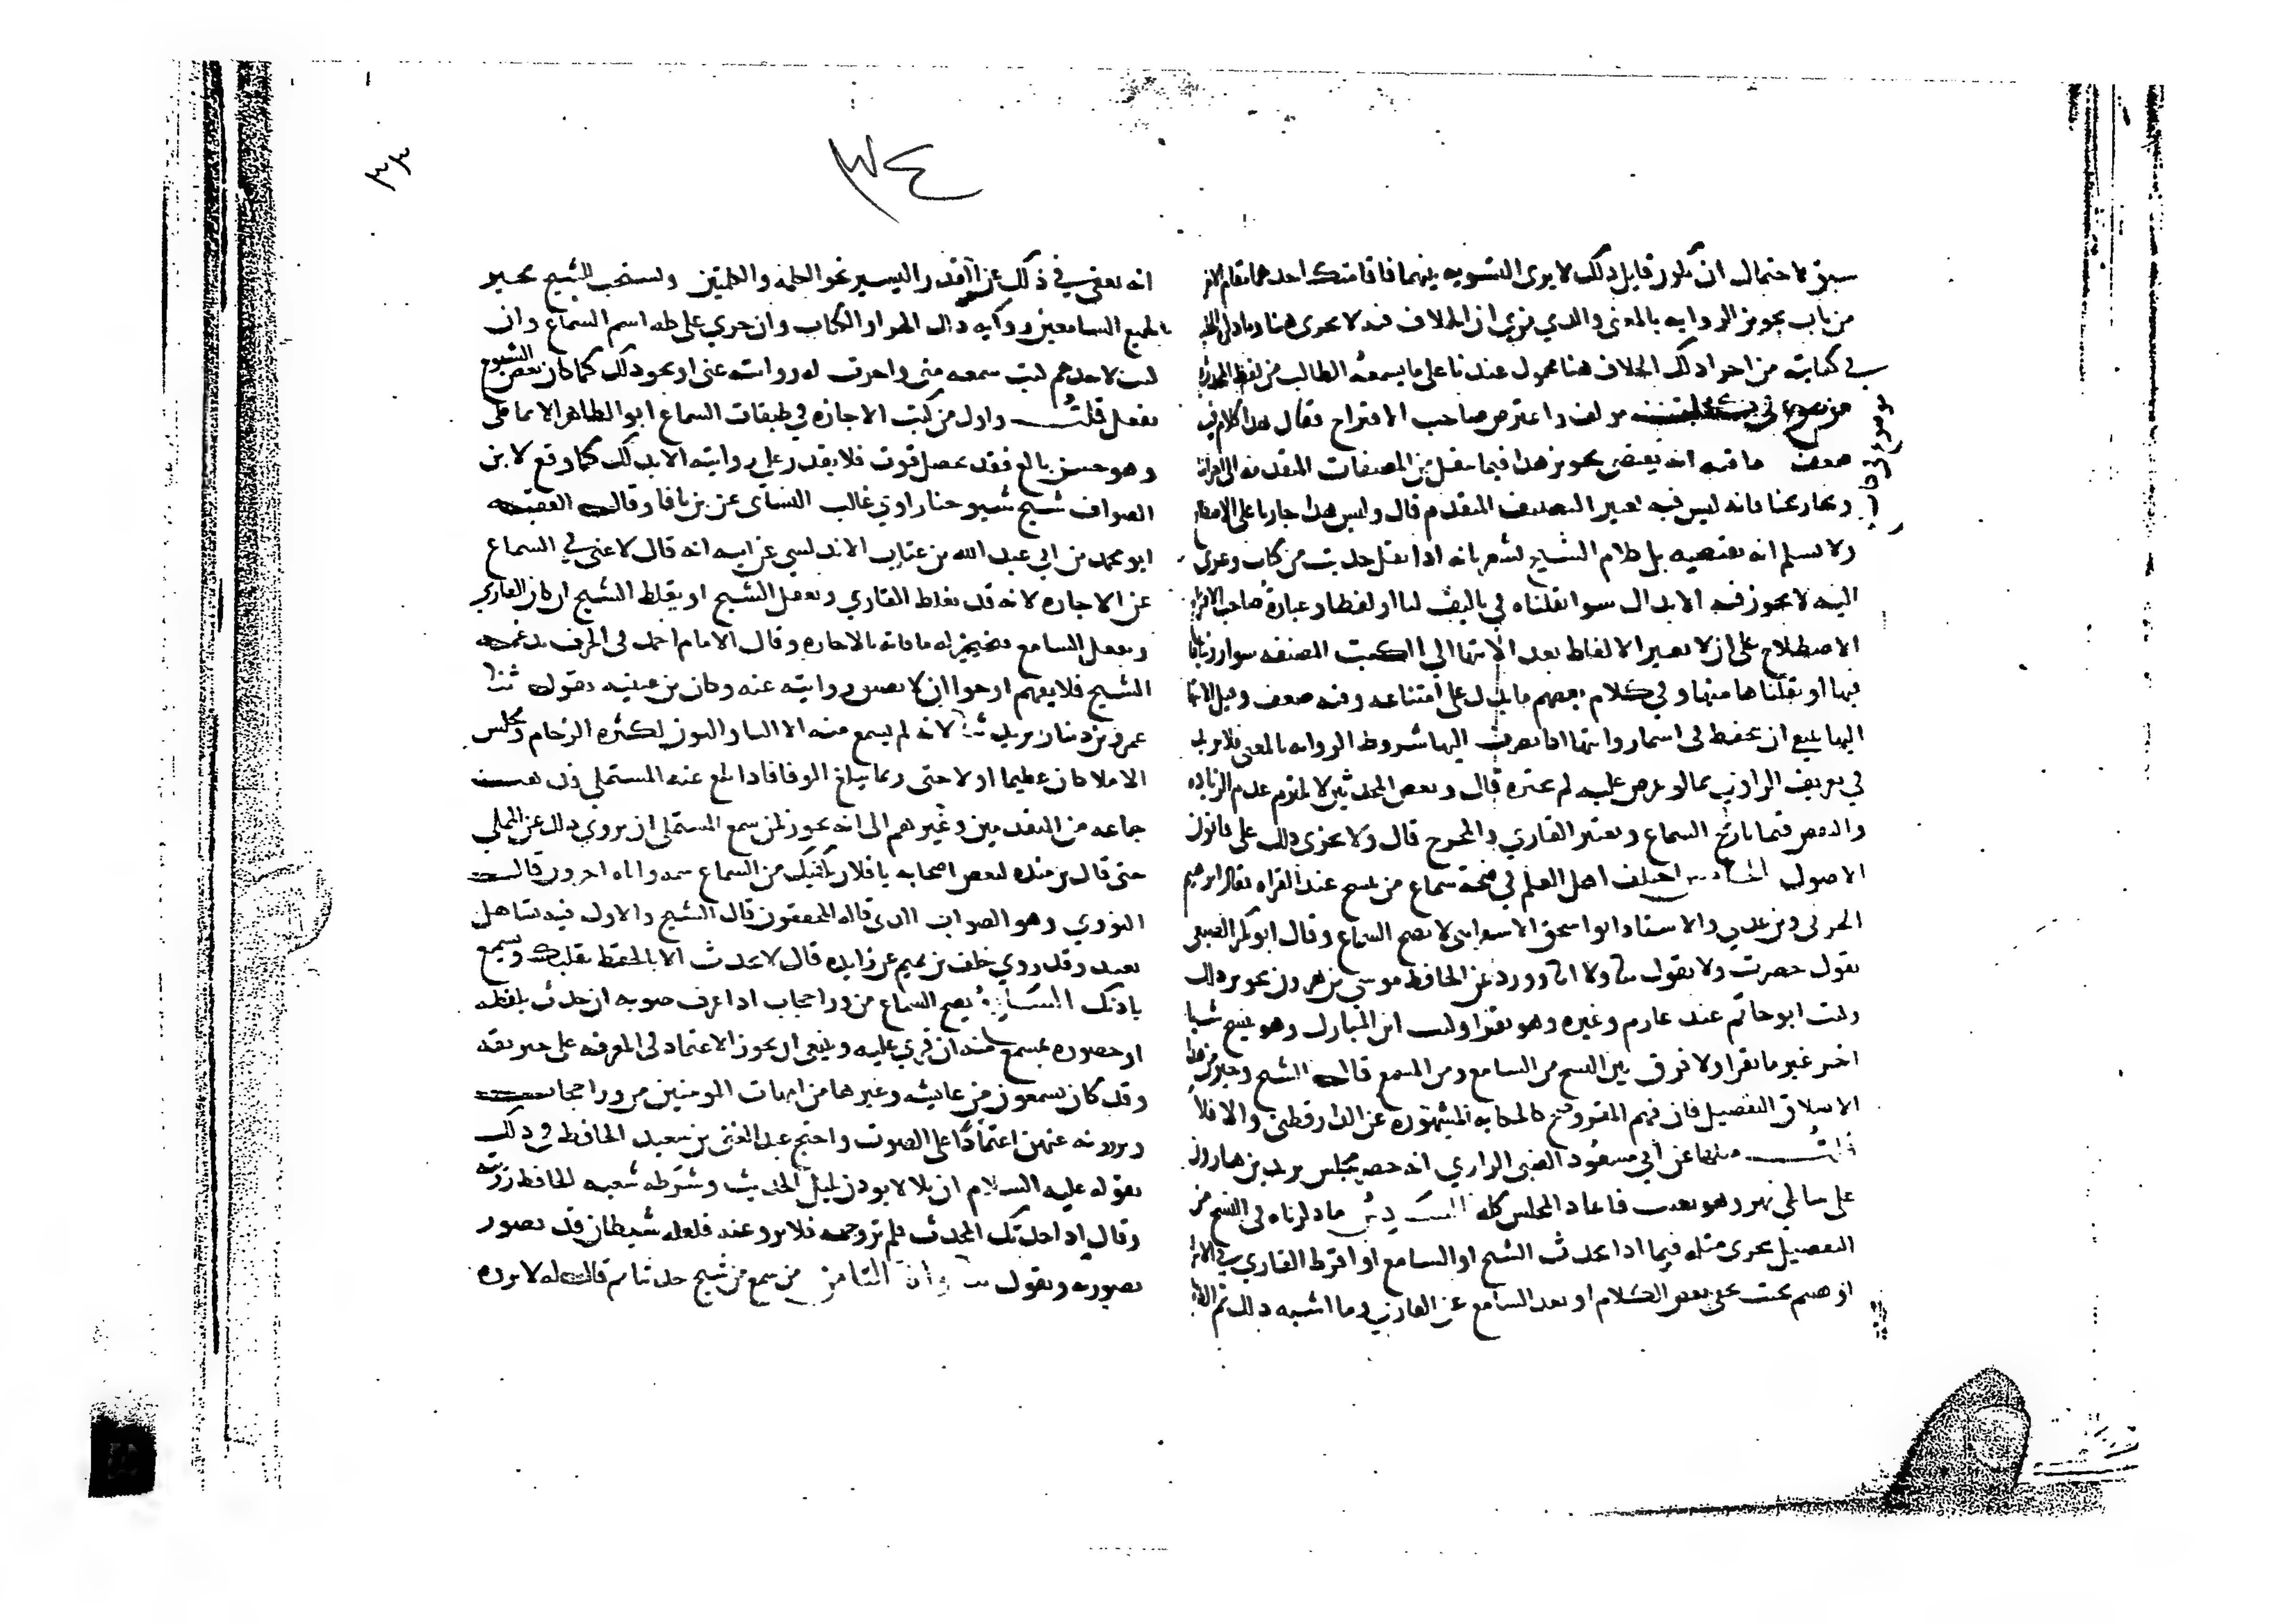 ٣٤
٣٤
سبق لاحتمال ان يكون قايل ذلك لا يرى التسويه بينهما فاقامتك احدهما مقام الاخر
من باب تجويز الروايه بالمعنى والذي نرى ان الخلاف فيه لا يجرى هنا وما ذكره الخطيب
في كفايته من اجرا ذلك الخلاف هنا محمول عندنا على ما يسمعه الطالب من لفظ المحدث
غير موضوع في كتاب مولف واعترض صاحب الاقتراح فقال هذا كلام فيه
ضعف ما فيه انه يقتضى تجويز هذا فيما ينقل من المصنفات المتقدمه الى اجزائنا
وتخاريجنا فانه ليس فيه تغيير التصنيف المتقدم قال وليس هذا جاريا على الاصطلاح
ولا نسلم انه يقتضيه بل كلام الشيخ يشعر بانه اذا نقل حديث من كتاب وعزى
اليه لا يجوز فيه الابدال سوا نقلناه في تاليف لنا او لفظا وعبارة صاحب الاقتراح
الاصطلاح على ان لا تغير الالفاظ بعد الانتها الى الكتب المصنفه سوا رويناها
فيها او نقلناها منها وفي كلام بعضهم ما يدل على امتناعه وفيه ضعف وقبل الانتها
اليها ينبغي ان يحفظ فيه شروط الروايه بالمعنى فلا يزيد
في تعريف الراوي بما لو عرض عليه لم يخبره قال وبعض المحدثين لا يلتزم عدم الزياده
والنقص فيما تاريخ السماع وتعتبر القاري والمخرج قال ولا يجرى ذلك على قانون
الاصول الخامس اختلف اهل العلم في صحة سماع من ينسخ عند القراه فقال ابراهيم
الحربي وبن عدي والاستاد ابو اسحق الاسفرايني لا يصح السماع وقال ابو بكر الصبغي
يقول حضرت ولا يقول ثنا ولا انا وورد عن الحافظ موسى بن هرون تجويز ذلك
وكتب ابو حاتم عند عارم وغيره وهو يقرا وكتب ابن المبارك وهو ينسخ شيا
اخر غير ما يقرا ولا فرق بين النسخ من السامع ومن المسمع قال الشيخ وخير من هذا
الاطلاق التفصيل فان فهم المقرو صح كالحكايه المشهوره عن الدارقطني والا فلا
قلت ومثلها عن ابي مسعود الضبي الرازي انه حضر مجلس يزيد بن هارون
على شاطي نهر وهو يعبث فاعاد المجلس كله السادس ما ذكرناه في النسخ من
التفصيل يجرى مثله فيما اذا تحدث الشيخ او السامع او افرط القاري في الاسراع
او هينم بحيث يخفى بعض الكلام او بعد السامع عن القاري وما اشبه ذلك ثم الظاهر
انه يعفى في ذلك عن القدر اليسير نحو الكلمه والكلمتين ويستحب للشيخ تجيز
لجميع السامعين روايه ذلك الجزء او الكتاب وان جرى على كله اسم السماع وان
كتب لاحدهم كتب سمعه مني واجزت له روايته عني او نحو ذلك كما كان بعض الشيوخ
يفعل قلت واول من كتب الاجازه في طبقات السماع ابو الطاهر الانماطي
وهو حسن بالغ فقد يحصل فوت فلا يقدر على روايته الا بذلك كما وقع لابن
الصواف شيخ شيوخنا راوي غالب النساى عن بن باقا وقال الفقيه
ابو محمد بن ابي عبد الله بن عتاب الاندلسي عن ابيه انه قال لا غنى في السماع
عن الاجازه لانه قد يغلط القاري ويغفل الشيخ او يغلط الشيخ ان كان القاري
ويغفل السامع فينجبر له ما فاته بالاجازه وقال الامام احمد في الحرف يدغمه
الشيخ فلا يفهم ارجوا ان لا يضيق روايته عنه وكان بن عيينه يقول ثنا
عمرو بن دينار يريد ثنا لانه لم يسمع منه الا الثا والنون لكثره الزحام ومجلس
الاملا كان عظيما اولا حتى ربما يبلغ الوفا فاذا بلغ عنه المستملي فذهب
جماعه من المتقدمين وغيرهم الى انه يجوز لمن سمع المستملي ان يروي ذلك عن المملي
حتى قال بن منده لبعض اصحابه يا فلان يكفيك من السماع شمه واباه اخرون قال
النووي وهو الصواب الذى قاله المحققون قال الشيخ والاول فيه تساهل
بعيد وقد روي خلف بن تميم عن زايده قال لا تحدث الا بما تحفظ بقلبك وتسمع
باذنك السابع يصح السماع من ورا حجاب اذا عرف صوته ان حدث بلفظه
او حضوره بمسمع منه ان قري عليه وينبغى ان يجوز الاعتماد في المعرفه على خبر ثقه
وقد كان يسمعون من عايشه وغيرها من امهات المومنين من ورا حجاب
ويروونه عنهن اعتمادا على الصوت واحتج عبد الغني بن سعيد الحافظ في ذلك
بقوله عليه السلام ان بلالا يوذن بليل الحديث وشرطه شعبه الحافظ رؤيته
وقال اذا حدثك المحدث فلم تر وجهه فلا ترو عنه فلعله شيطان قد تصور
بصورته ويقول ثنا وانا الثامن من سمع من شيخ حديثا ثم قال له لا تروه